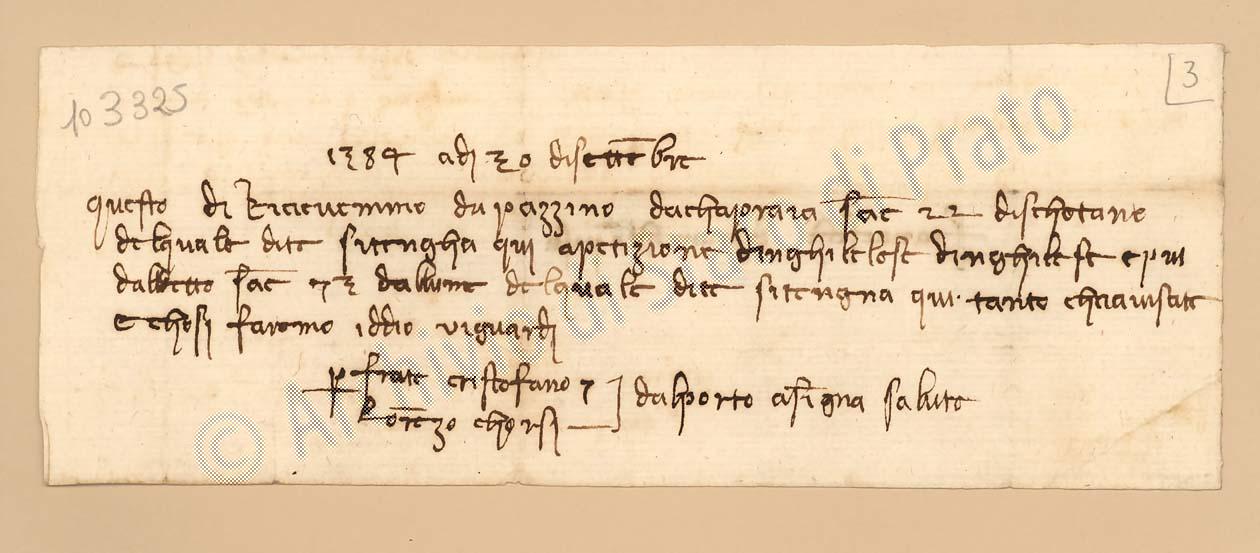 103325
[3
1384 adj 30 disettēbre
questo di Riceuemmo da pazzino dachapraia sac 22 dischotano
delquale dite sitengha qui apetizione dinghilese dinghilese epiu
dalletto sac 73 dallume delquale dite sitengna qui tanto chaauisate
E chosi faremo iddio uiguardj
p frate cristofano 7
Lorēzo chorsj
dalporto asigna salute
© Archivio di Stato di Prato